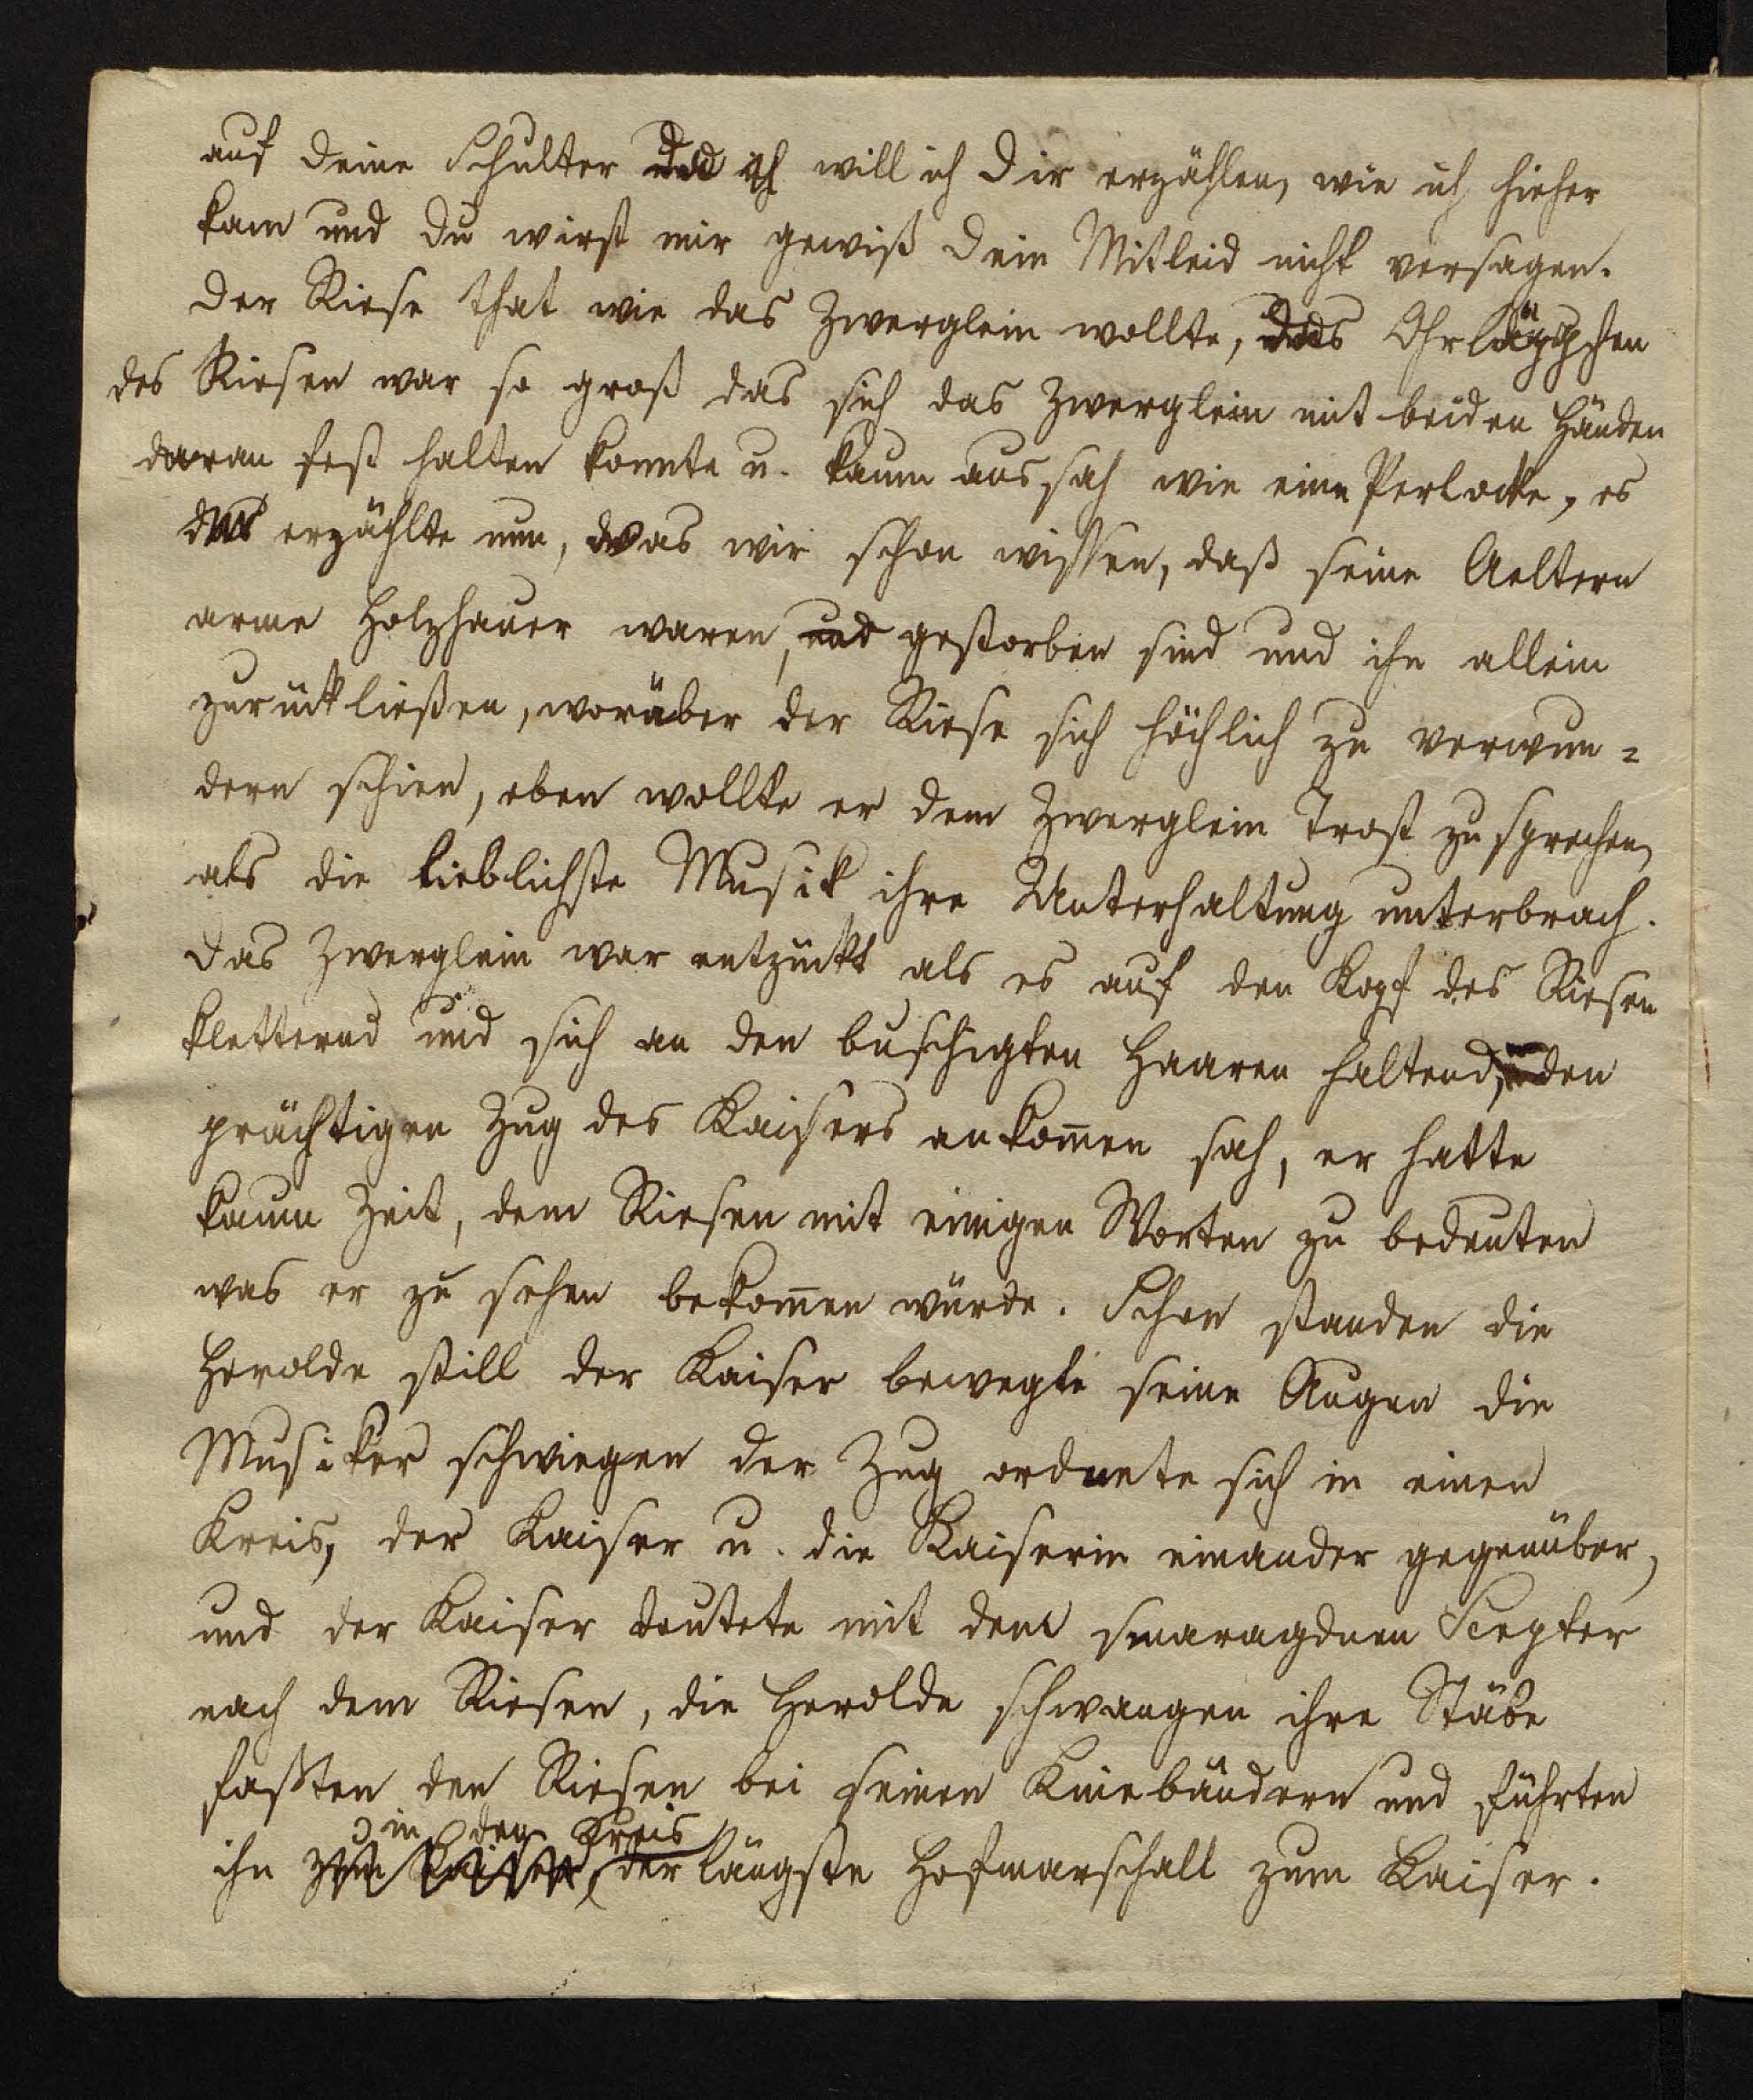 auf deine Schulter und ich will ich dir erzählen, wie ich hieher
kam und du wirst mir gewiß dein Mitleid nicht versagen.
Der Riese that wie das Zwerglein wollte, das Ohrläppchen
des Riesen war so groß das sich das Zwerglein mit beiden Händen
daran fest halten konnte u. kaum aussah wie eine Perlocke, es
erzählte nun, was wir schon wissen, daß seine Aeltern
arme Holzhauer waren, und gestorben sind und ihn allein
zurückließen, worüber der Riese sich höchlich zu verwun=
dern schien, eben wollte er dem Zwerglein Trost zu sprechen,
als die lieblichste Musik ihre Unterhaltung unterbrach.
Das Zwerglein war entzückt als es auf den Kopf des Riesen
kletternd und sich an den buschigten Haaren haltend, den
prächtigen Zug des Kaisers ankom̄en sah, er hatte
kaum Zeit, dem Riesen mit einigen Worten zu bedeuten
was er zu sehen bekom̄en würde. Schon standen die
Herolde still der Kaiser bewegte seine Augen die
Musiker schwiegen der Zug ordnete sich in einen
Kreis, der Kaiser u. die Kaiserin einander gegenüber,
und der Kaiser deutete mit dem smaragdnen Scepter
nach dem Riesen, die Herolde schwangen ihre Stäbe
faßten den Riesen bei seinen Kniebändern und führten
in den Kreis
ihn zum Kaiser, der längste Hofmarschall zum Kaiser.